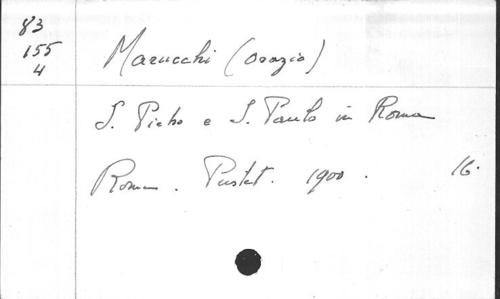 83
155
4
Marucchi (Orazio)
S. Pietro e S. Paolo in Roma
Roma. Pustet. 1900. 16.